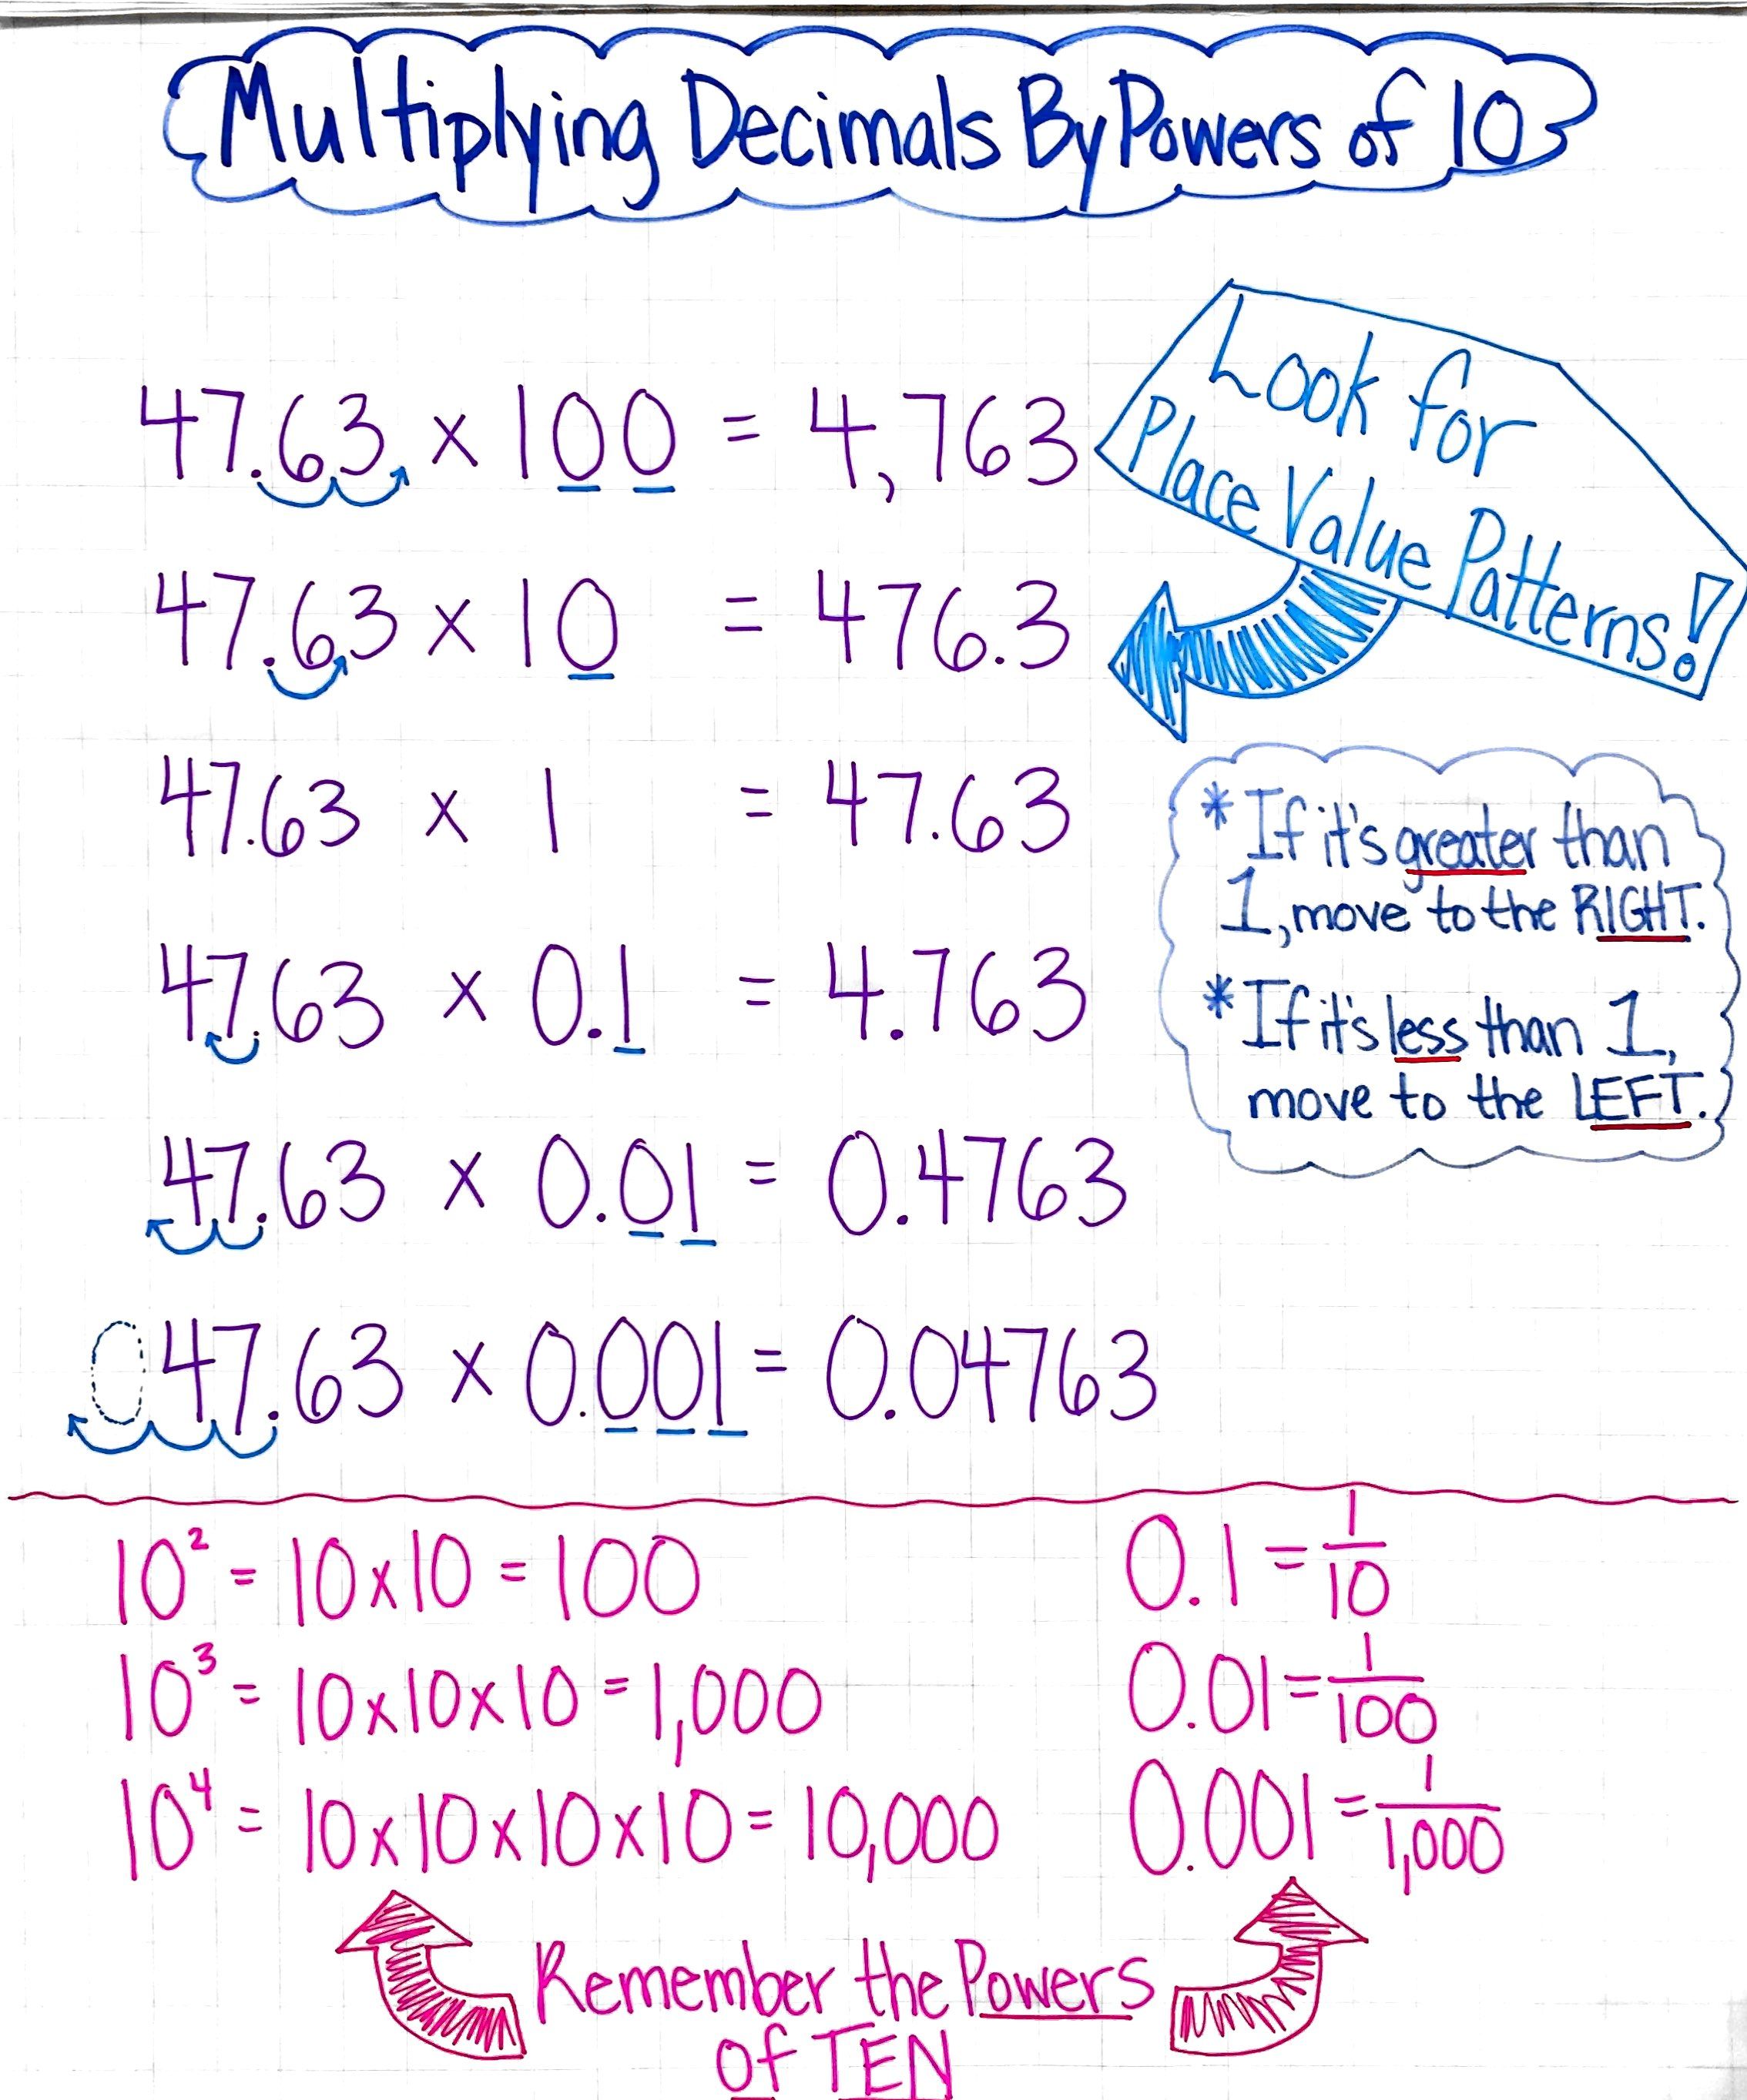 Multiplying Decimals By Powers of 10
47.63 × 100 = 4,763
47.63 × 10 = 476.3
47.63 × 1 = 47.63
47.63 × 0.1 = 4.763
47.63 × 0.01 = 0.4763
047.63 × 0.001 = 0.04763
Look for
Place Value Patterns!
* If it's greater than
1, move to the RIGHT.
* If it's less than 1,
move to the LEFT.
10² = 10×10 = 100
10³ = 10×10×10 = 1,000
10⁴ = 10×10×10×10 = 10,000
0.1 = 1/10
0.01 = 1/100
0.001 = 1/1,000
Remember the Powers
of TEN